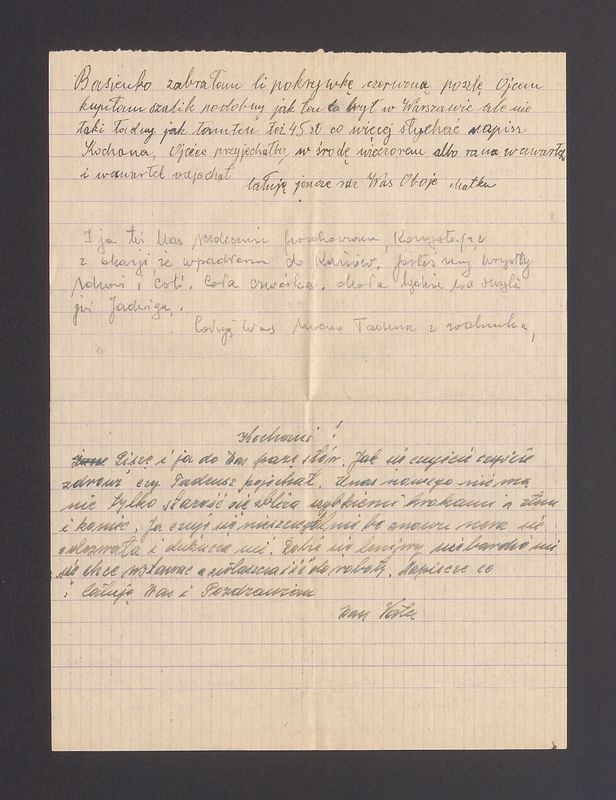 Basienko zabrałam Ci pokrywkę czerwoną poszlę, Ojcu
kupiłam szalik podobny jak ten co był w Warszawie ale nie
taki ładny jak tamten też 45 zł co więcej słychać napisz
Kochana, Ojciec przyjechałby w środę wieczorem albo rano w czwartek
i w czwartek odjechał
Całuję jeszcze raz Was Oboje Matka
I ja też Was serdecznie Korzystając
z okazji, że wpadłem do Jesteśmy wszyscy
zdrowi i cali. Cała czwórka.
już Jadwiga.
Całuję Was Tadeusz z rodzinką,
Kochani!
Piszę i ja do Was parę słów. Jak się czujecie czyście
zdrowi czy Tadeusz pojechał. U nas nowego nic ma
nic tylko starość się zbliża szybkiemi krokami a z tem
i koniec. Ja czuję się bo znowu się
odezwała i dokucza mi. Robię się leniwy, nie bardzo mi
się chce wstawać a zwłaszcza iść do roboty. Napiszcie co
i Całuję Was i Pozdrawiam
Wasz